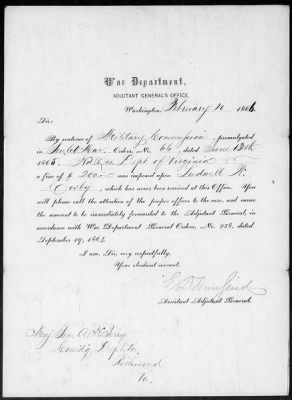 War Department,
ADJUTANT GENERAL'S OFFICE,
Washington, February 10 1866
Sir:
By sentence of Military Commission, promulgated
in Orders, No. 66, dated June 12th
1865. Dept of Virginia
a fine of $ 200 was imposed upon Ludwell
Cosby, which has never been received at this Office. You
will please call the attention of the proper officer to the case, and cause
the amount to be immediately forwarded to the Adjutant General, in
accordance with War Department General Orders, No. 258, dated
September 19, 1864.
I am, Sir, very respectfully,
Your obedient servant,
E. D. Townsend
Assistant Adjutant General.
Maj. Gen. A. H. Terry
Comd'g Dept. Va.
Richmond
Va.